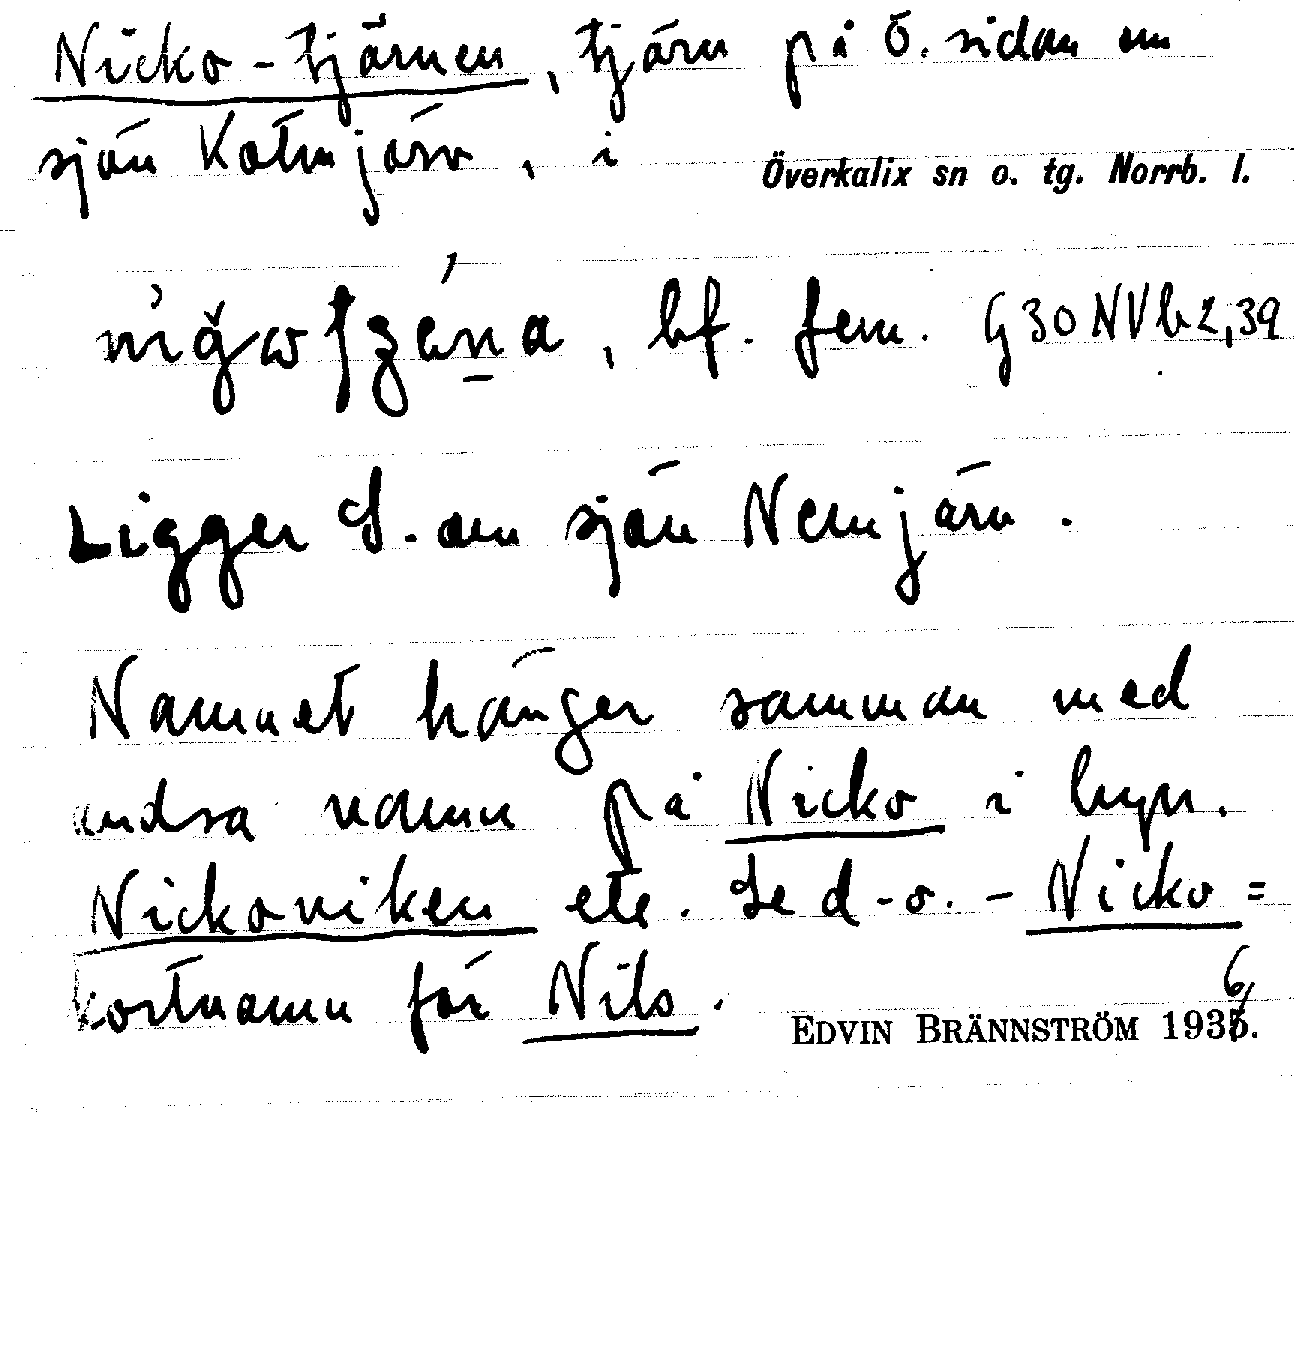 Nicko-tjärnen, tjärn på Ö. sidan om
sjön Kotmjärv, i Överkalix sn o. tg. Norrb. l.
bf. fem. G30 NV b 2,39
Ligger S. om sjön Nemjärv.
Namnet hänger samman med
andra namn på Nicko i byn.
Nickoviken etc. Se d-o. - Nicko =
kortnamn för Nils.
EDVIN BRÄNNSTRÖM 1936.